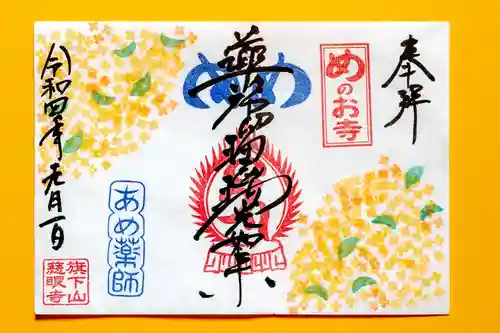 奉拝
めのお寺
薬師瑠璃光如来
あめ薬師
令和四年元月一日
旗下山
慈眼寺